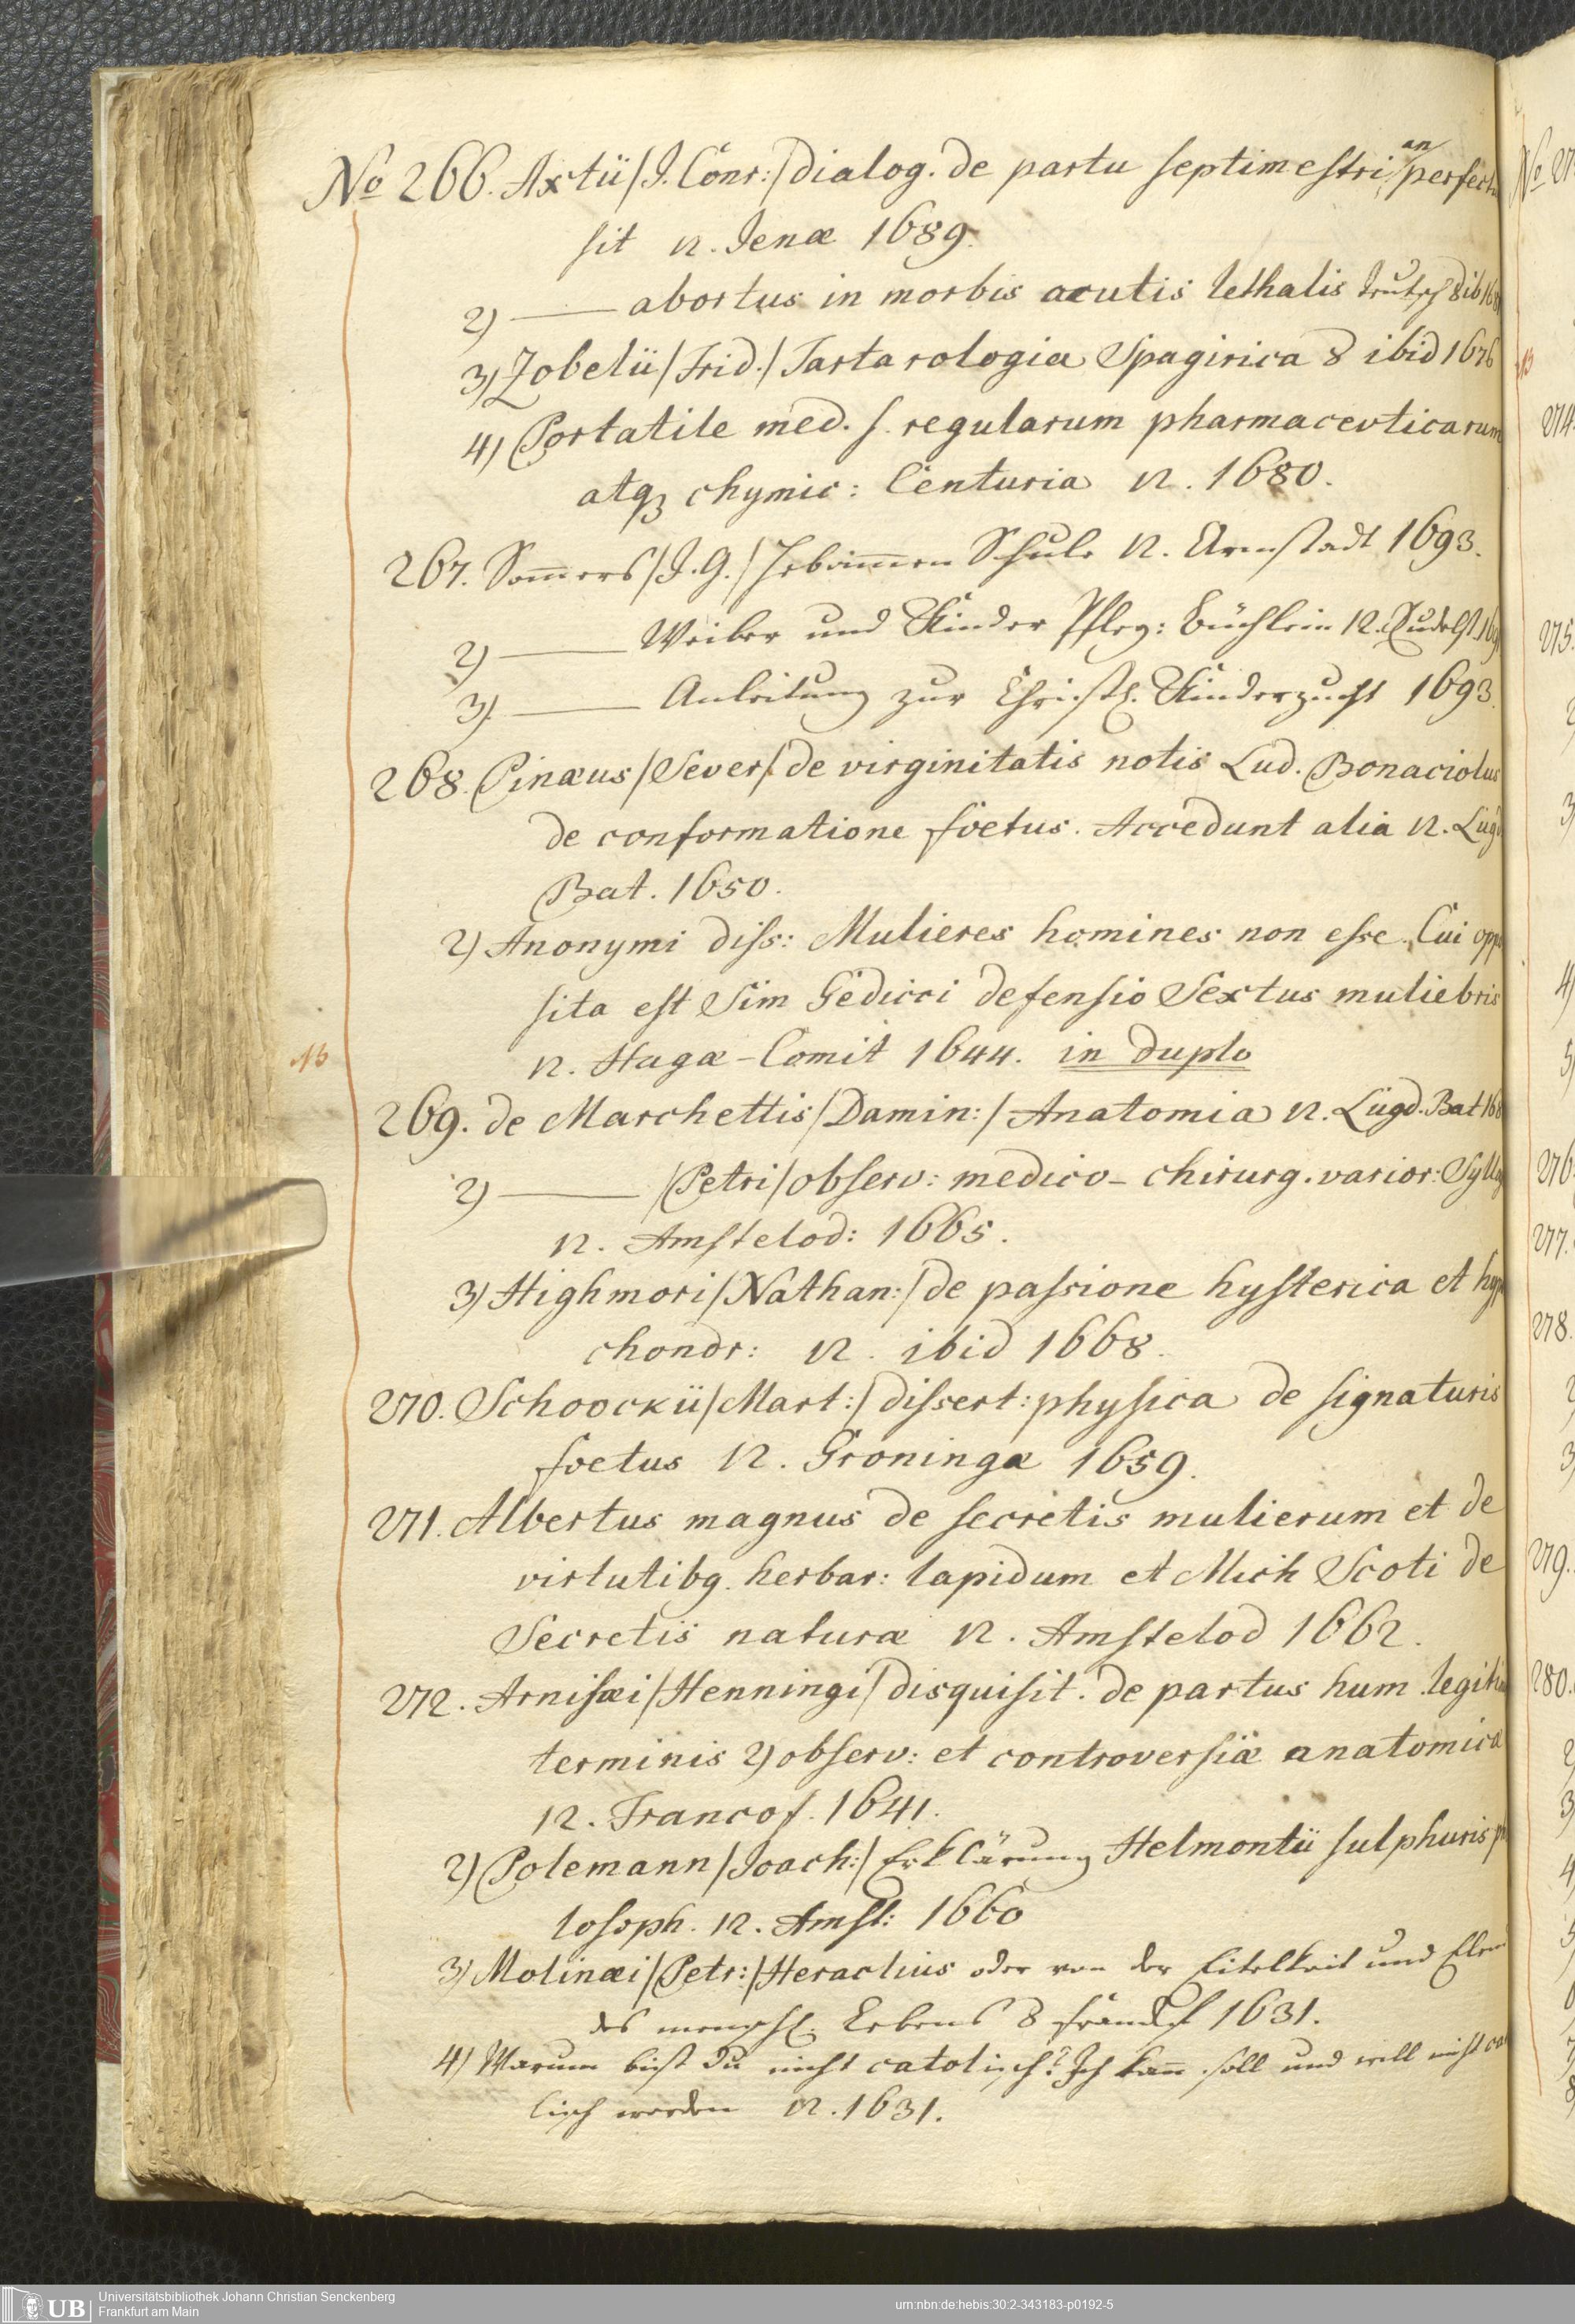 No 266. Axtii /J. Conr:/ dialog. de partu septimestri, an perfectu
sit 12. Jenæ 1689.
2) —— abortus in morbis acutis lethalis teutsch 8 ib 168
3) Zobelii /Frid./ Tartarologia Spagirica 8 ibid 1676
4) Portatile med. s. regularum pharmacevticarum
atq3 chymic: Centuria 12. 1680.
267. Som̄ers /J. G./ Hebam̄en Schule 12. Arnstadt 1693.
2) —— Weiber und Kinder Pfleg: büchlein 12. Rudolst. 169
3) —— Anleitung zur Christl. Kinderzucht 1693.
268. Pinæus /Sever/ de virginitatis notis Lud. Bonaciolus
de conformatione föetus. Accedunt alia 12. Lugd
Bat. 1650.
2) Anonymi diss: Mulieres homines non esse. Cui oppo
sita est Sim Gedicci defensio Sextus muliebris
12. Hagæ-Comit 1644. in duplo
269. de Marchettis /Damin:/ Anatomia 12. Lugd. Bat 168
2) —— /Petri/ observ: medico-chirurg. varior: Syllog
12. Amstelod: 1665.
3) Highmori /Nathan:/ de passione hysterica et hypo
chondr: 12. ibid 1668.
270. Schoockii /Mart:/ dissert: physica de signaturis
foetus 12. Groningæ 1659.
271. Albertus magnus de secretis mulierum et de
virtutibg. herbar: lapidum et Mich Scoti de
Secretis naturæ 12. Amstelod 1662.
272. Arnisæi /Henningi/ disquisit. de partus hum. legitim
terminis 2) observ: et controversiæ anatomicæ
12. Francof. 1641.
2) Polemann /Joach:/ Erklärung Helmontii sulphuris phi
losoph. 12. Amst: 1660
3) Molinæi /Petr:/ Heraclius oder von der Eitelkeit und Elend
des menschl. Lebens 8 fränckf 1631.
4) Warum bist du nicht catolisch? Ich kan̄ soll und will nicht cat
lisch werden 12. 1631.
Universitätsbibliothek Johann Christian Senckenberg
Frankfurt am Main
UB
urn:nbn:de:hebis:30:2-343183-p0192-5